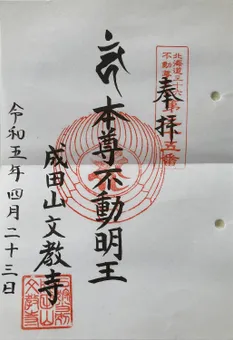 奉拝
北海道三十六
不動尊
第
五番
本尊不動明王
成田山文教寺
令和五年四月二十三日